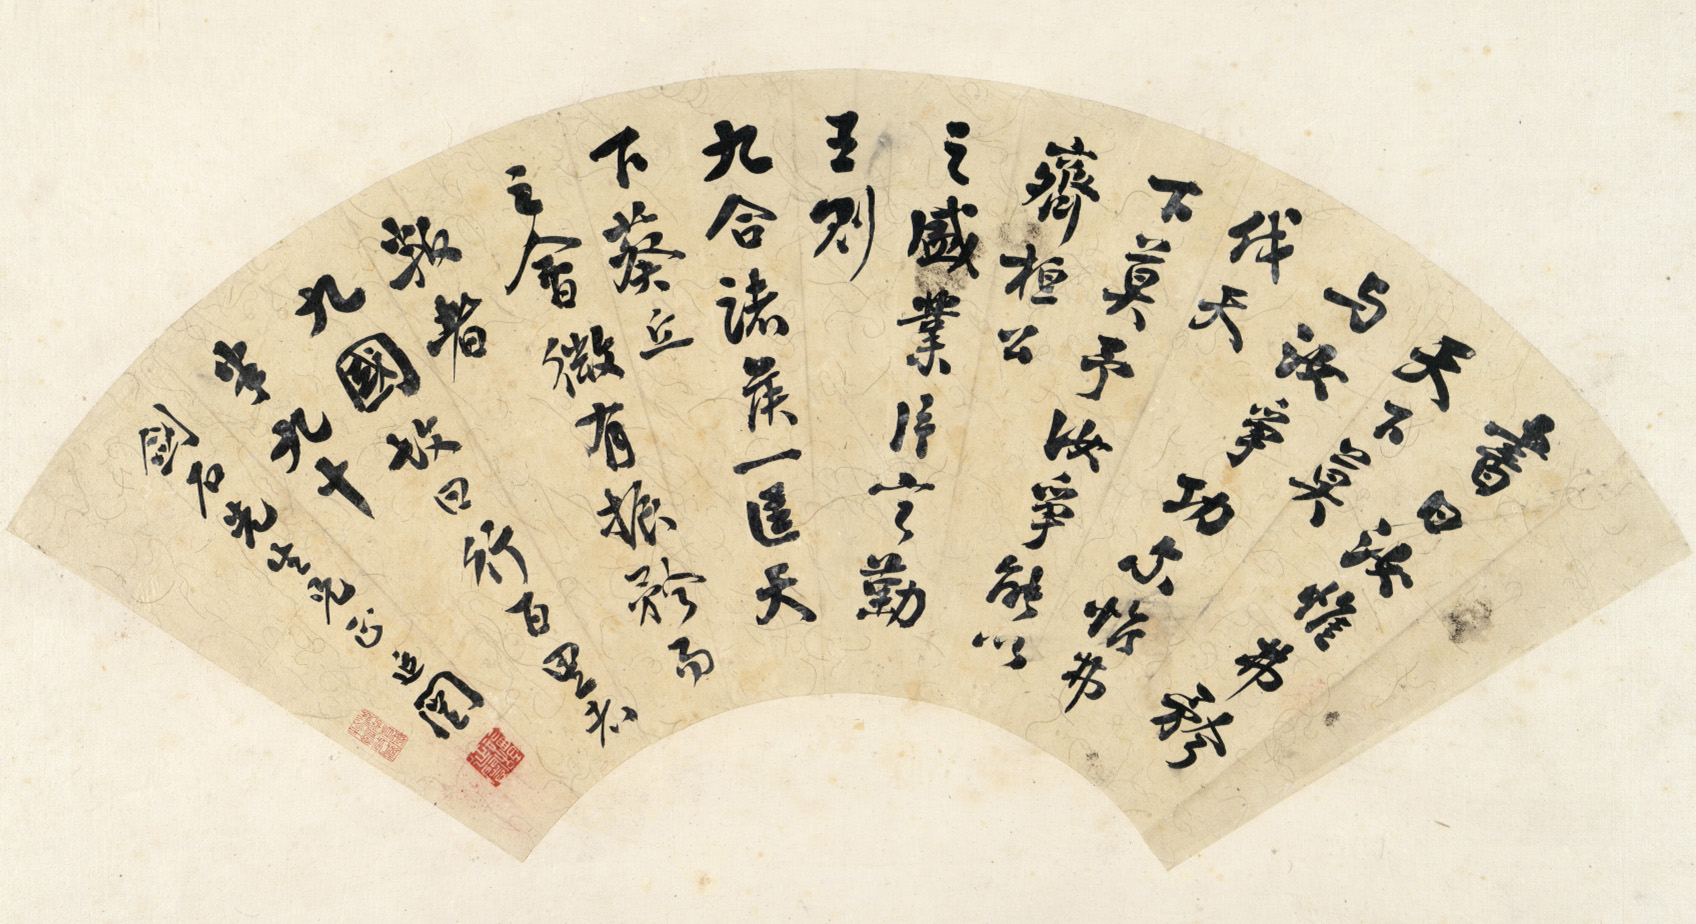 書曰汝惟弗矜
天下莫
与汝爭功尔惟弗
伐天
下莫予汝爭能以
齊桓公
之盛業言勤
王則
九合諸侯一匡天
下葵丘
之會微有振矜而
叛者
九國故曰行百里者
半九十
石先生兄正